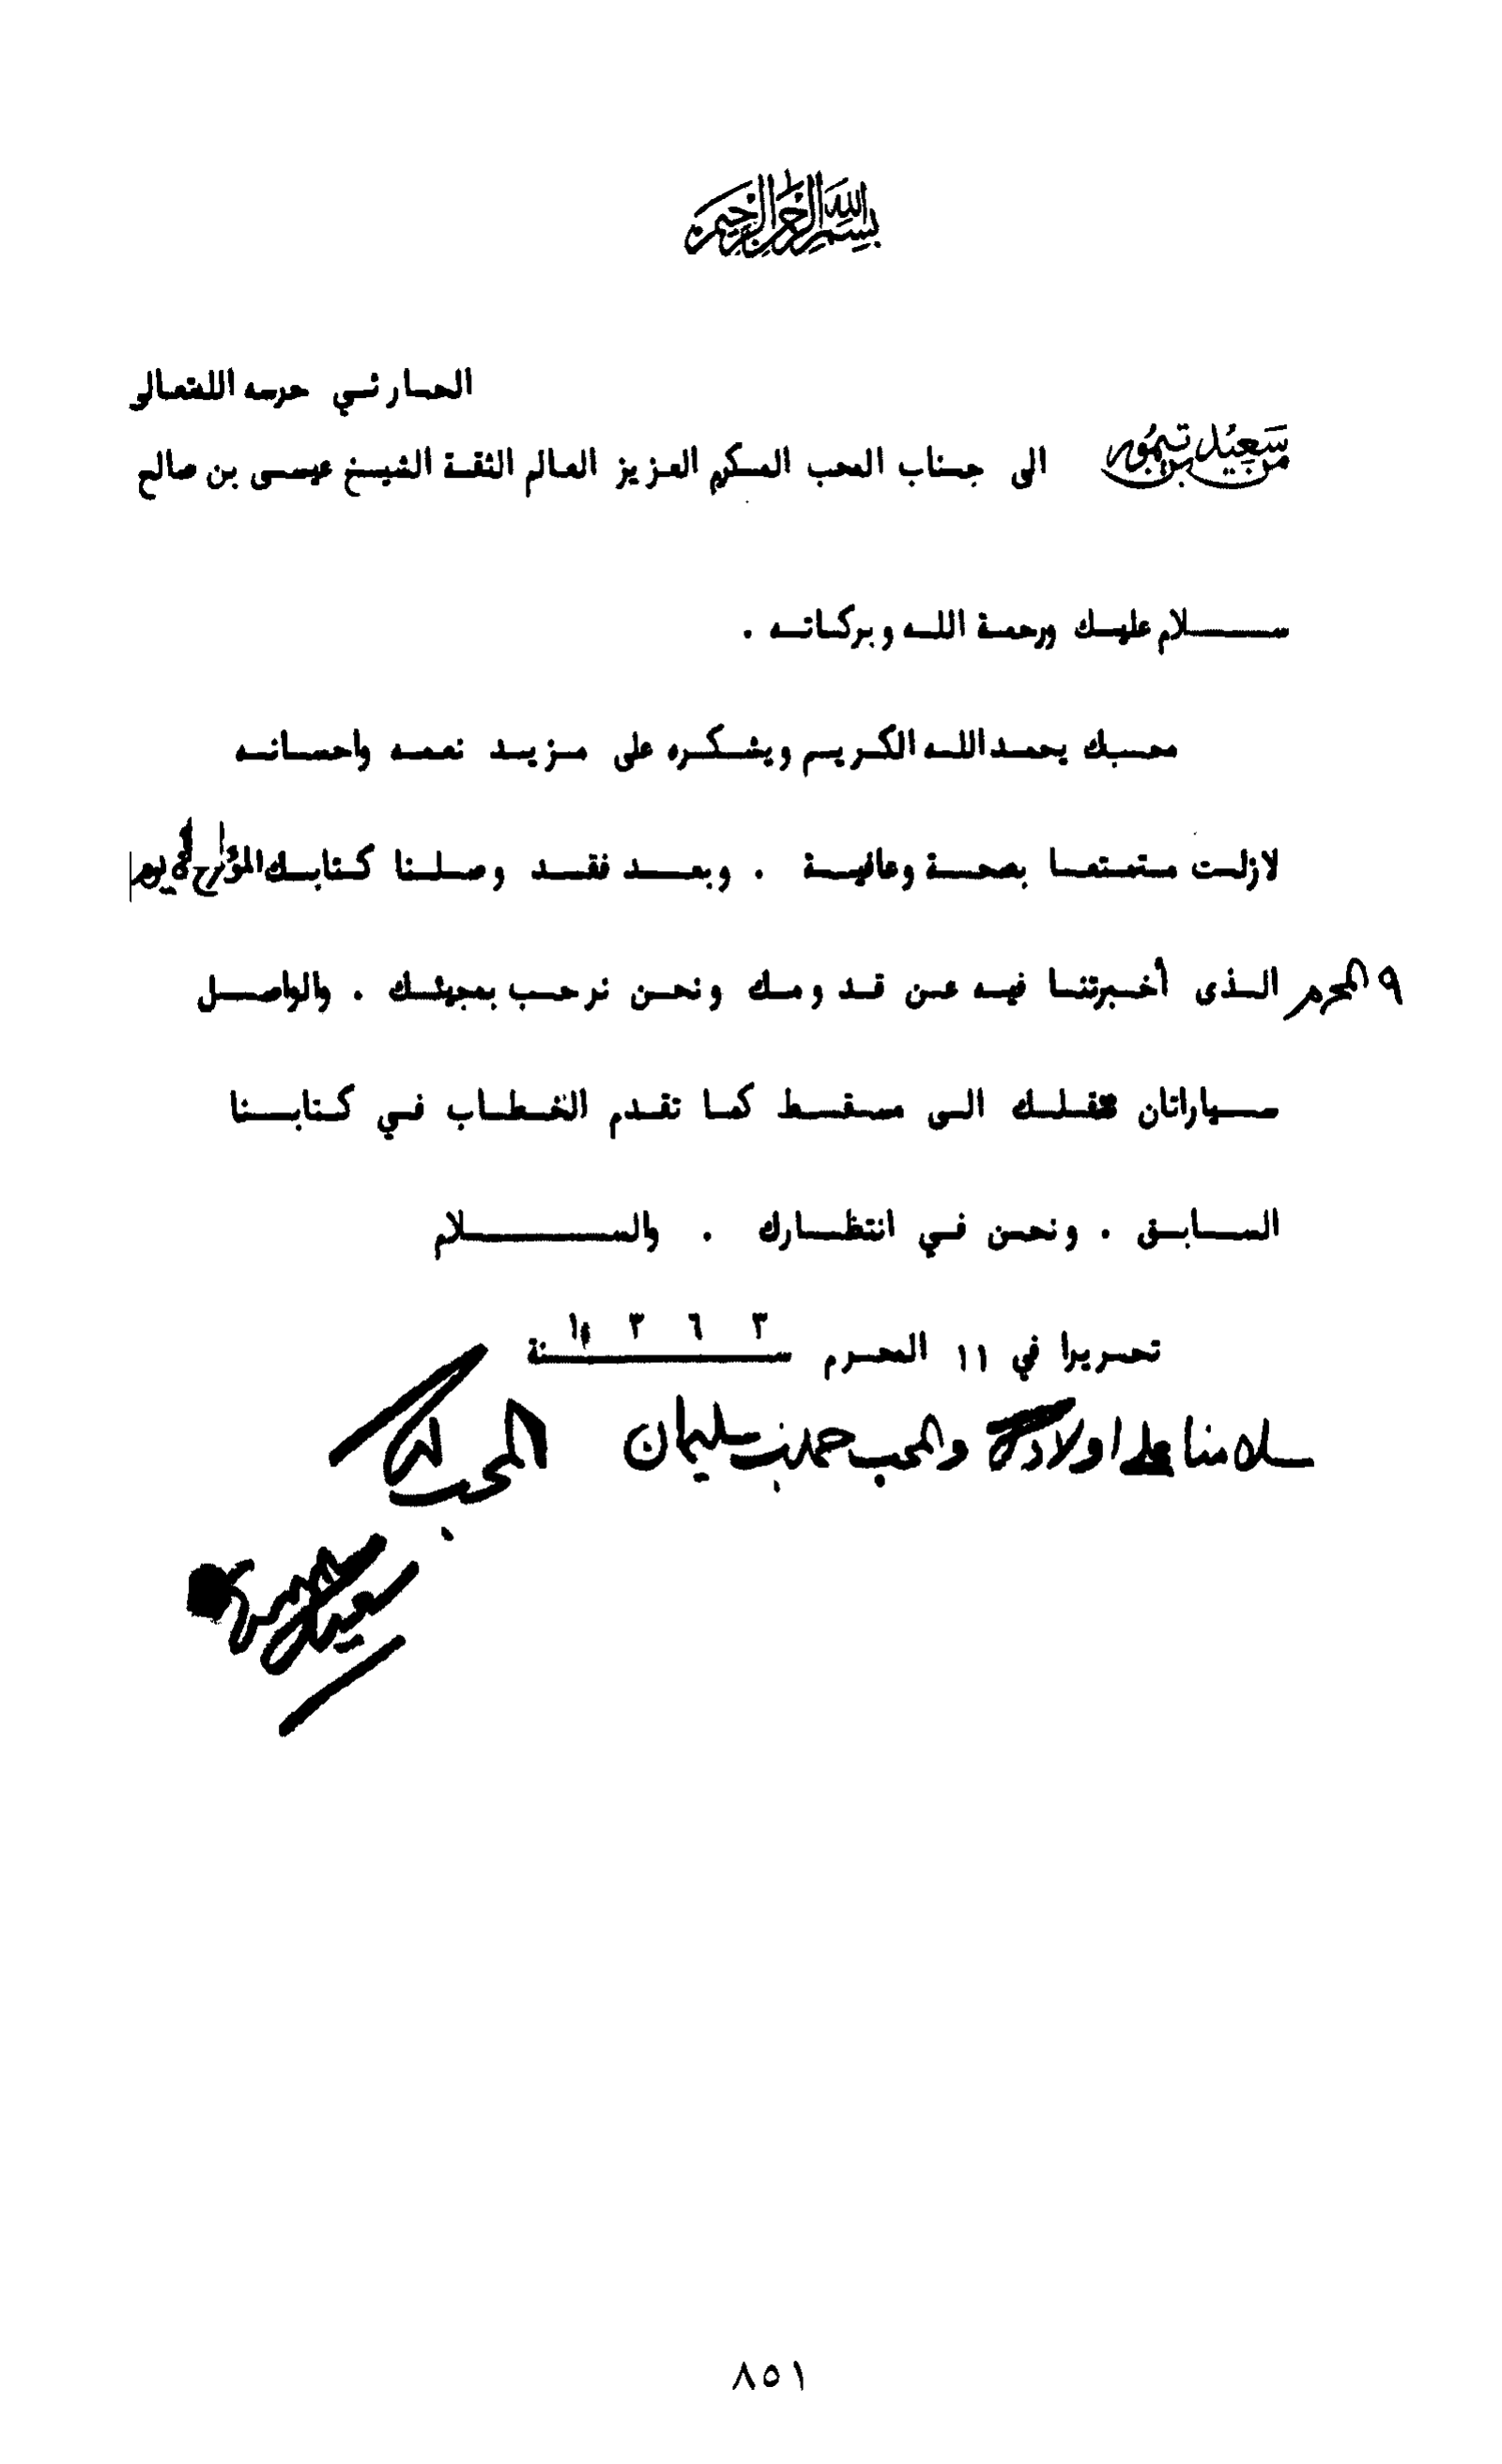 بسم الله الرحمن الرحيم
من سعيد بن تيمور الى جناب المحب المكرم العزيز العالم الثقة الشيخ عيسى بن صالح
الحارثي حرسه الله تعالى
سلام عليك ورحمة الله وبركاته .
محبك يحمد الله الكريم ويشكره على مزيد نعمه واحسانه
لازلت متمتعا بصحة وعافية . وبعد فقد وصلنا كتابك المؤرخ يوم
٩ المحرم الذى أخبرتنا فيه عن قدومك ونحن نرحب بمجيئك . والواصل
سياراتان تقلك الى مسقط كما تقدم الخطاب في كتابنا
السابق . ونحن في انتظارك . والسلام
تحريرا في ١١ المحرم سنة ١٣٦٣
سلامنا على اولادك والمحب حمد بن سليمان المحب لك
سعيد بن تيمور
٨٥١